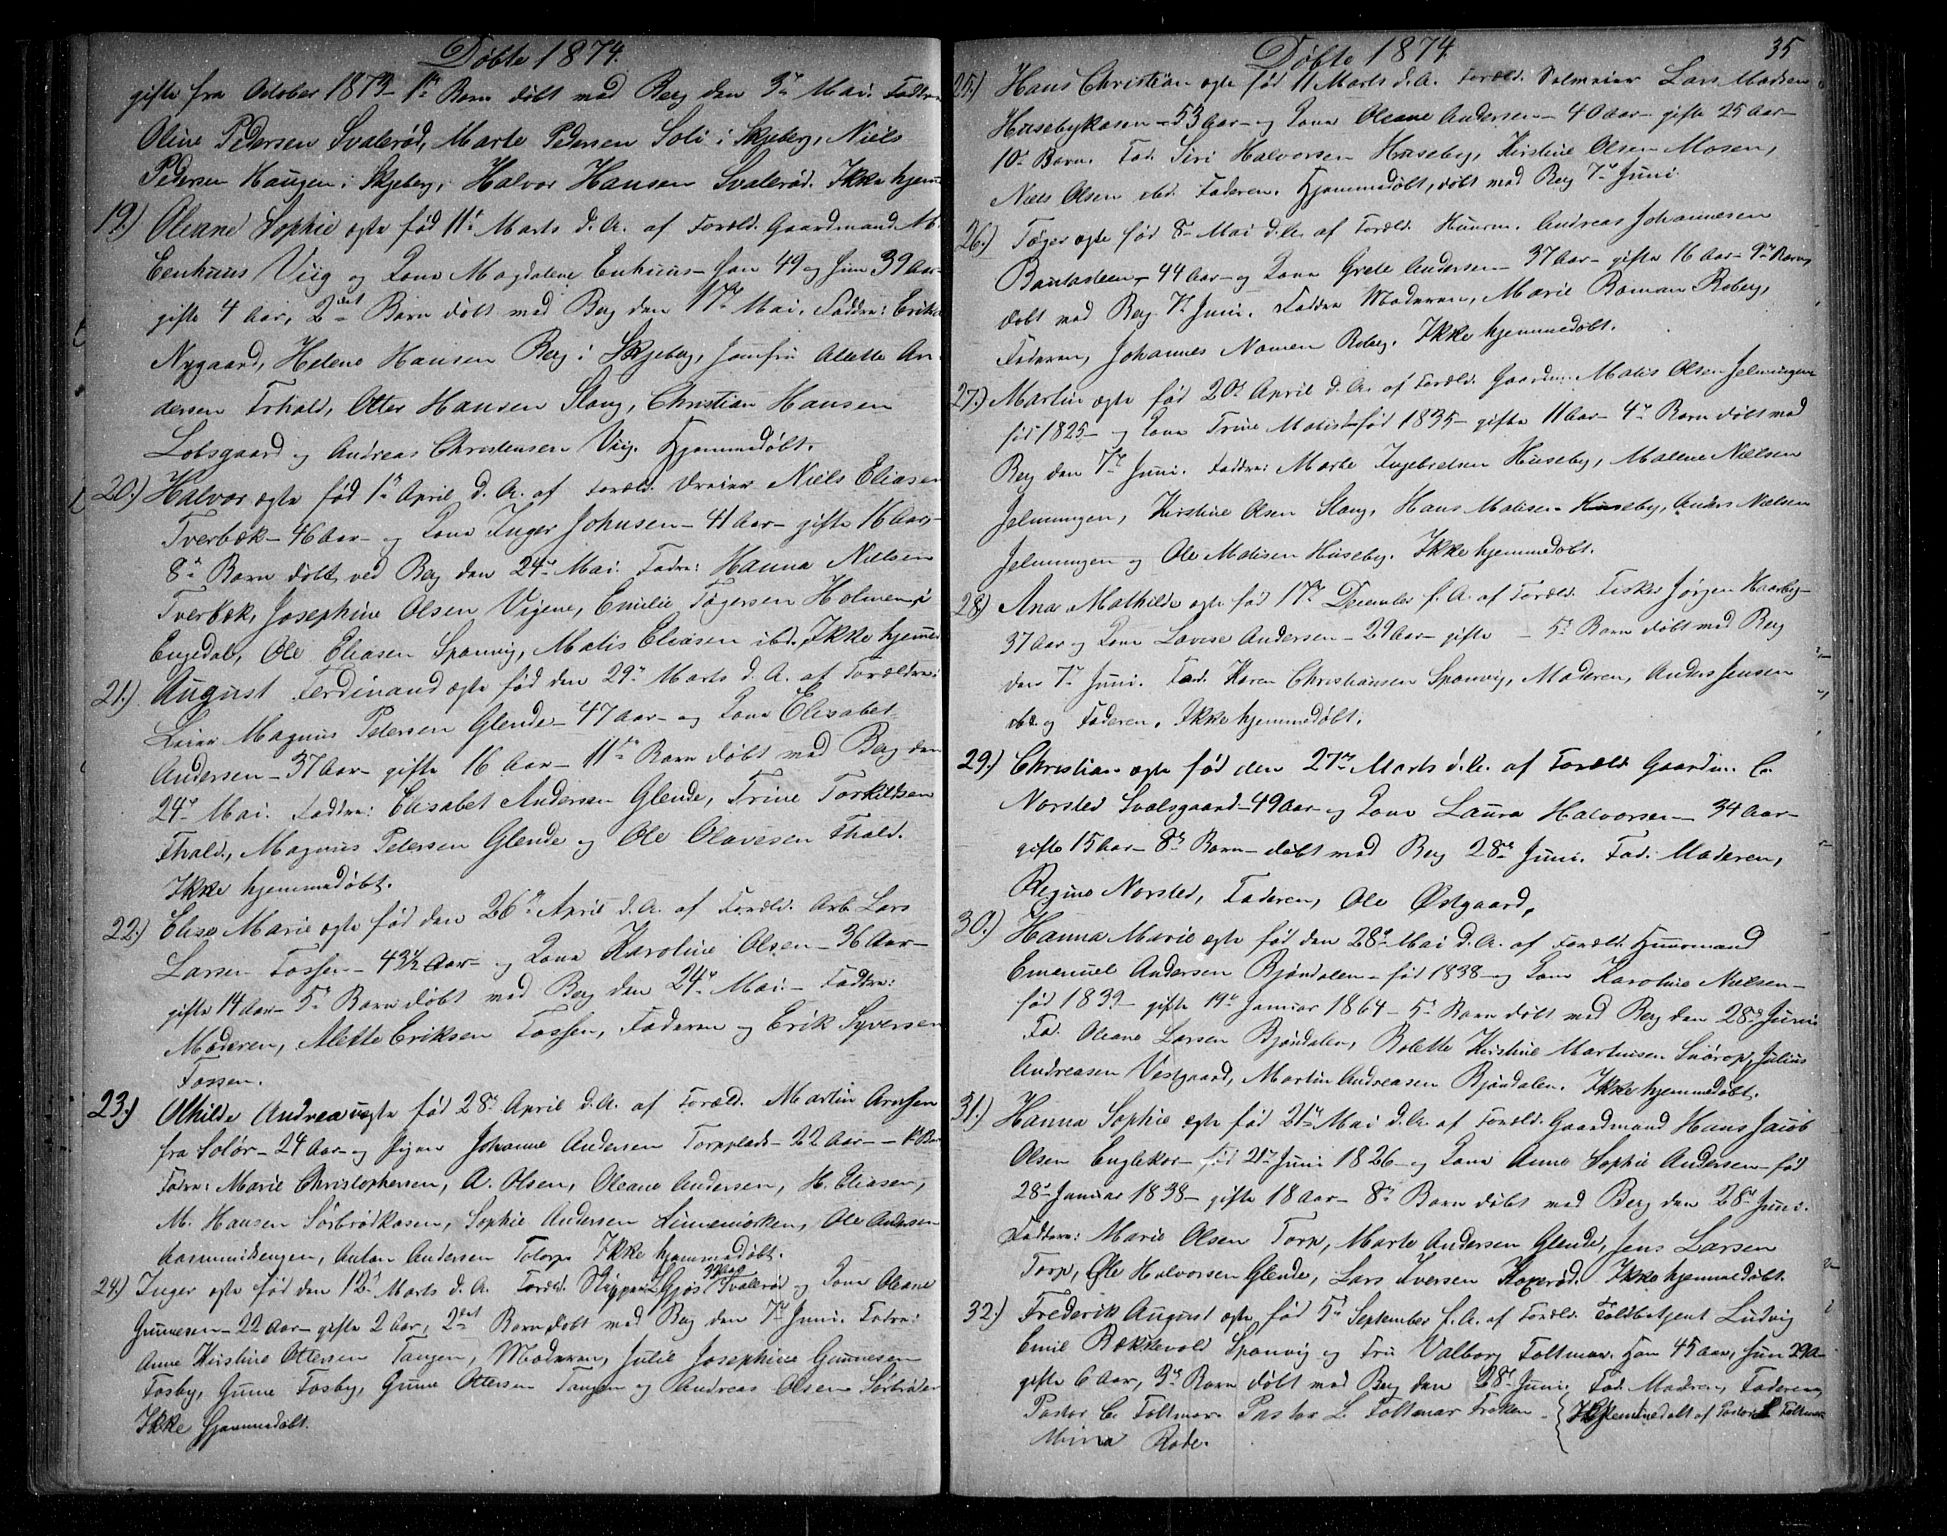 Døbte 1874.
gifte fra October 1873 - 1ste Barn døbt ved Berg den 3die Mai. Faddre
Oline Pedersen Svalerød, Marte Pedersen Soli i Skjeberg, Niels
Pedersen Haugen i Skjeberg, Halvor Hansen Svalerød. Ikke hjem-
19.) Oleane Sophie ægte født 11te Marts d. A. af Foræld. Gaardmand M.
Eenhuus Viig og Kone Magdalene Enhuus - han 49 og hun 39 Aar -
gifte 4 Aar, 2det Barn døbt ved Berg den 17de Mai. Faddre: Erika
Nygaard, Helene Hansen Berg i Skjeberg, Jomfru Alette An-
dersen Frhald, Otter Hansen Slang, Christian Hansen
Lobsgaard og Andreas Christensen Viig. Hjemmedøbt.
20.) Halvor ægte født 1ste April d. A. af Foræld. Dreier Niels Eliasen
Tverbæk - 46 Aar - og Kone Inger Johnsen - 41 Aar - gifte 16 Aar -
8de Barn døbt ved Berg den 24de Mai. Fadre: Hanna Nielsen
Tverbæk, Josephine Olsen Vigene, Emilie Tøgersen Holmen i
Engedal, Ole Eliasen Sponvig, Matis Eliasen ibd. Ikke hjemmed
21.) August Ferdinand ægte født den 29de Marts d. A. af Forældre:
Leier Magnus Petersen Glende - 47 Aar - og Kone Elisabet
Andersen - 37 Aar - gifte 16 Aar - 11te Barn døbt ved Berg den
24de Mai. Faddre: Elisabet Andersen Glende, Trine Torkildsen
Fhald, Magnus Petersen Glende og Ole Olavesen Fhald.
Ikke hjemmedøbt.
22.) Elise Marie ægte født den 26de April d. A. af Foræld. Arb. Lars
Larsen Fossen - 43½ Aar - og Kone Karoline Olsen - 36 Aar -
gifte 14 Aar - 5te Barn døbt ved Berg den 24de Mai - Faddre:
Moderen, Alette Eriksen Fossen, Faderen og Erik Syversen
Fossen.
23.) Othilde Andrea uægte født 28de April d. A. af Foræld. Martin Arnesen
fra Solør - 24 Aar - og Pigen Johanne Andersen Torpplads - 22 Aar - 1ste Barn
Fadre: Marie Christophersen, A. Olsen, Oleane Andersen, H. Eliasen,
M. Hansen Sørbrødkasen, Sophie Andersen Linnemørken, Ole Andersen
Anton Andersen Totorp. Ikke hjemmedøbt.
24.) Inger ægte født den 12te Marts d. A. Foræld. Skipper L. Gjøs Svalerød og Kone Oleane
Gunnesen - 22 Aar - gifte 2 Aar, 2det Barn døbt ved Berg den 7de Juni. Fadre:
Anne Kirstine Ottersen Tangen, Moderen, Julie Josephine Gunnesen
Fosby, Gune Fosby, Gune Ottersen Tangen og Andreas Olsen Sørbrøden
Ikke hjemmedøbt.
Døbte 1874. 35
25.) Hans Christian ægte født 11 Marts d. A. Foræld. Selveier Lars Madsen
Husebykasen - 53 Aar - og Kone Oleane Andersen - 40 Aar - gifte 25 Aar -
10de Barn. Fad. Siri Halvorsen Huseby, Kirstine Olsen Mosen,
Niels Olsen ibd. Faderen. Hjemmedøbt, døbt ved Berg 7de Juni
26.) Tøger ægte født 8de Mai d. A. af Foræld. Huusm. Andreas Johannesen
Bautasteen - 44 Aar - og Kone Grete Andersen - 37 Aar - gifte 16 Aar - 9de Barn
døbt ved Berg 7de Juni. Faddre Moderen, Marie Roman Roberg,
Faderen, Johannes Nomen Roberg. Ikke hjemmedøbt.
27.) Martin ægte født 20de April d. A. af Foræld. Gaardm. Matis Olsen Jelmungen
født 1825 - og Kone Trine Matist født 1835 - gifte 11 Aar - 4de Barn døbt ved
Berg den 7de Juni. Faddre: Marte Ingebretsen Huseby, Malene Nielsen
Jelmungen, Kirstine Olsen Slang, Hans Matisen Huseby, Anders Nielsen
Jelmungen og Ole Matisen Huseby. Ikke hjemmedøbt.
28.) Ana Mathilde ægte født 17de December f. A. af Foræld. Fisker Jørgen Haarby -
37 Aar og Kone Lovise Andersen - 29 Aar - gifte - 5te Barn døbt ved Berg
den 7de Juni. Fad. Karen Christiansen Sponvig, Moderen, Anders Jensen
ibd og Faderen. Ikke hjemmedøbt.
29.) Christian ægte født den 27de Marts d. A. af Foræld. Gaardm. C.
Norsted Svalsgaard - 49 Aar - og Kone Laura Halvorsen - 34 Aar -
gifte 15 Aar - 8de Barn - døbt ved Berg 28de Juni. Fad. Moderen,
Regine Norsted, Faderen, Ole Østgaard.
30.) Hanna Marie ægte født den 28de Mai d. A. af Foræld. Huusmand
Emanuel Andersen Bjøndalen - født 1838 - og Kone Karoline Nielsen -
født 1839 - gifte 19de Januar 1864 - 5te Barn døbt ved Berg den 28de Juni
Fad. Oleane Larsen Bjøndalen, Bolette Kirstine Martinsen Svorop, Julius
Andreasen Vestgaard, Martin Andreasen Bjøndalen. Ikke hjemmedøbt.
31.) Hanna Sophie ægte født 21de Mai d. A. af Foræld. Gaardmand Hans Jacob
Olsen Englekor - født 21de Juni 1826 - og Kone Anne Sophie Andersen - født
28de Januar 1838 - gifte 18 Aar - 8de Barn døbt ved Berg den 28de Juni.
Faddre: Marie Olsen Torp, Marte Andersen Glende, Jens Larsen
Torp, Ole Halvorsen Glende, Lars Iversen Koxrød. Ikke hjemmedøbt.
32.) Frederik August ægte født 5te September f. A. af Foræld. Toldbetjent Ludvig
Emil Rækkevold Sponvig og Fru Valborg Foltmar. Han 45 Aar, hun 29 Aar
gifte 6 Aar, 3die Barn døbt ved Berg den 28de Juni. Fad. Moderen, Faderen,
Pastor C. Foltmar. Pastor L. Foltmar Frøken - { Hjemmedøbt af Pastor L Foltmar
Mina Rode.